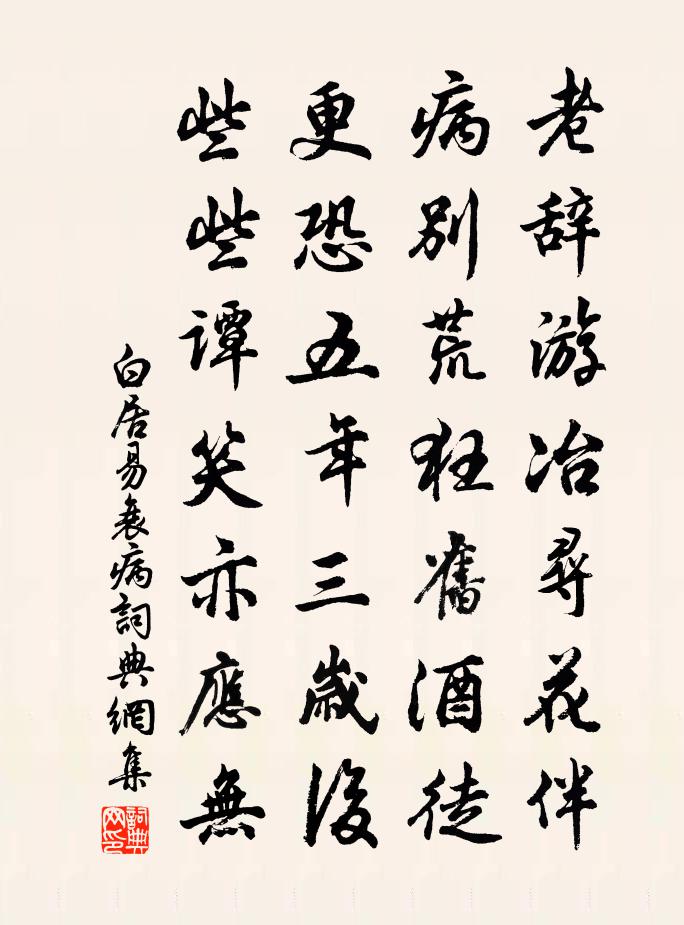 老辞游冶尋花伴
病别荒狂舊酒徒
更恐五年三歲後
些些譚笑亦應無
白居易衰病詞典網集
詞典網印